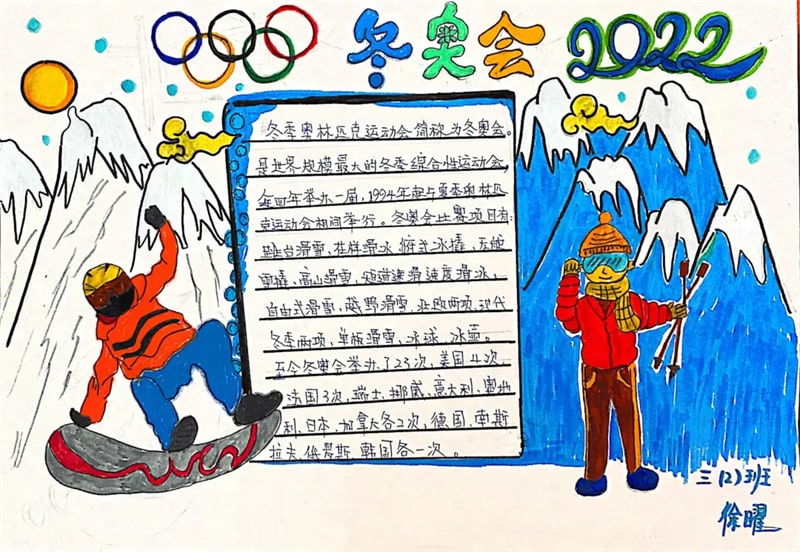 冬奥会 2022
冬季奥林匹克运动会简称为冬奥会。
是世界规模最大的冬季综合性运动会,
每四年举办一届,1994年起与夏季奥林匹
克运动会相间举行。冬奥会比赛项目有:
跳台滑雪、花样滑冰、俯式冰橇、无舵
雪橇、高山滑雪、短道速滑速度滑冰,
自由式滑雪、越野滑雪、北欧两项、现代
冬季两项、单板滑雪、冰球、冰壶。
至今冬奥会举办了23次,美国4次、
法国3次,瑞士、挪威、意大利、奥地
利、日本、加拿大各2次,德国、南斯
拉夫、俄罗斯、韩国各一次。
三(2)班
徐曜